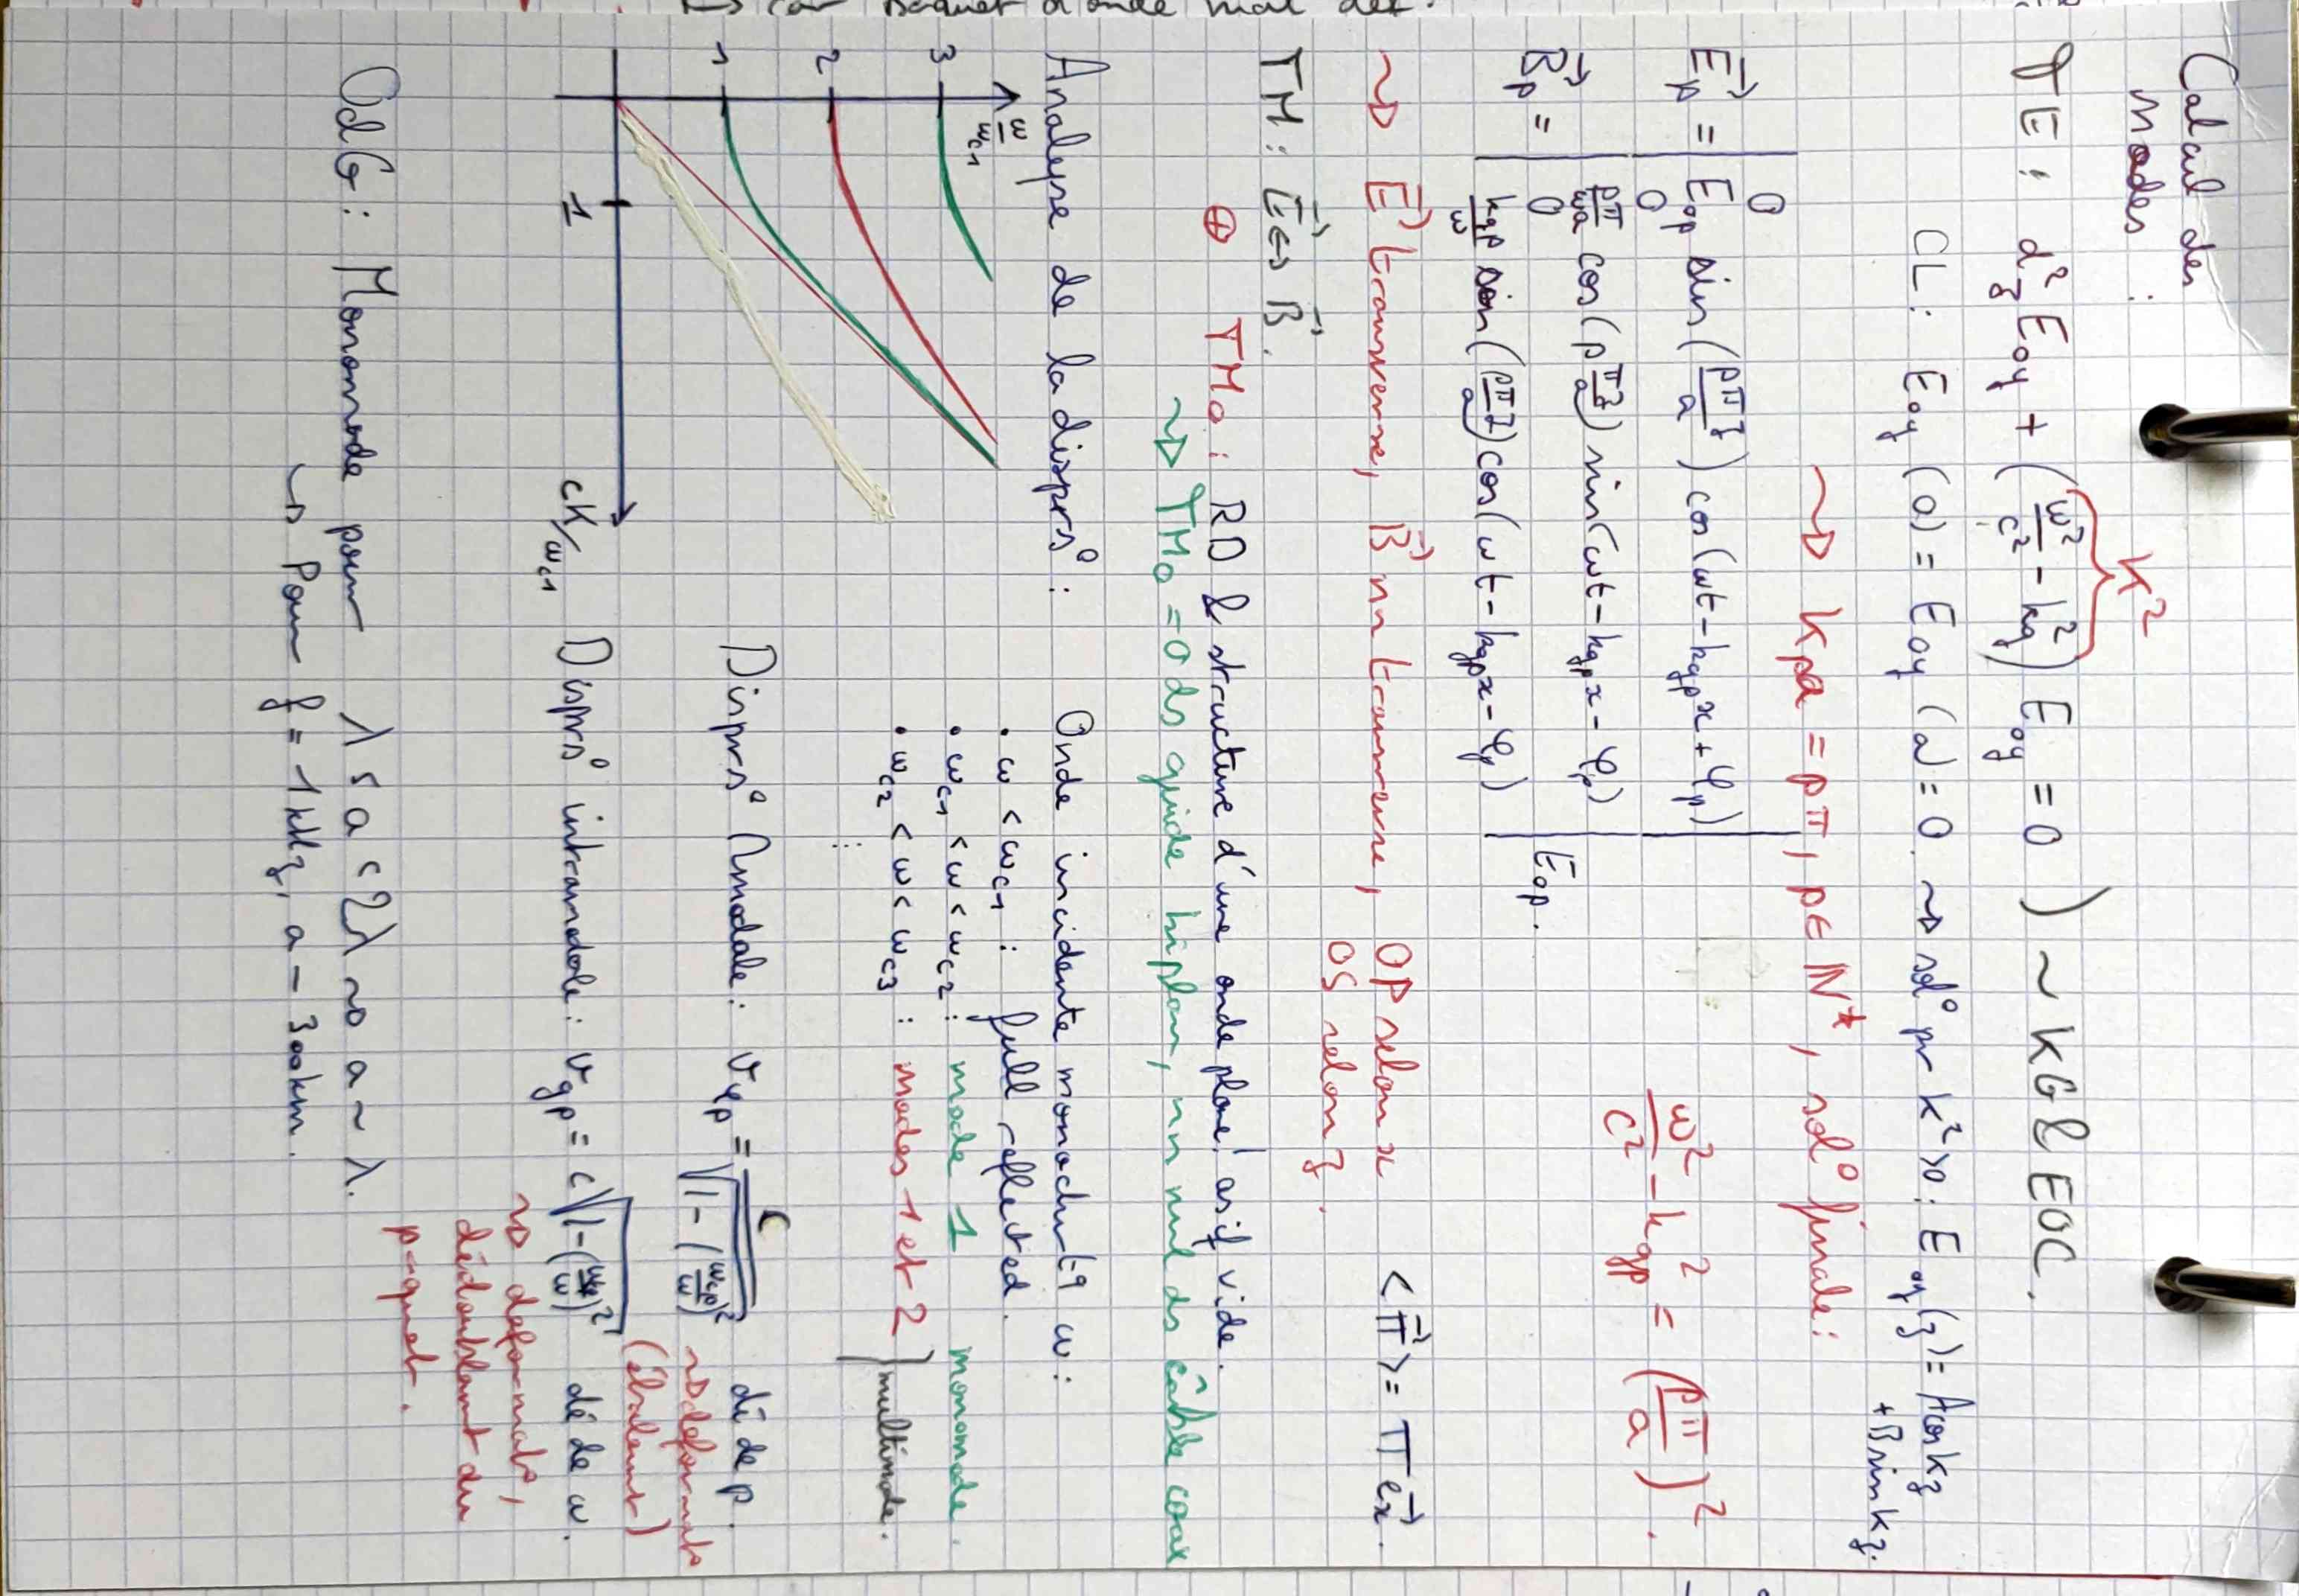 Calcul des
modes :
TE : d²_z E_oy + (ω²/c² - k_g²) E_oy = 0 ) ~ KG & EOC.
K²
CL : E_oy (0) = E_oy (a) = 0. ⇝ sol° pr K²>0 : E_oy(z) = A cos kz
+ B sin kz.
⇝ K_p a = pπ, p∈ℕ*, sol° finale :
E_p⃗ = | 0
E_op sin(pπz/a) cos(ωt - k_gp x + φ_p)
0
ω²/c² - k_gp² = (pπ/a)².
B_p⃗ = | pπ/ωa cos(pπz/a) sin(ωt - k_gp x - φ_p)
0
k_gp/ω sin(pπz/a) cos(ωt - k_gp x - φ_p) | E_op.
⇝ E⃗ transverse, B⃗ nn transverse, OP selon x
OS selon z.
<π⃗> = π e_x⃗.
TM : E⃗ ↔ B⃗.
⊕ TM₀ : RD & structure d'une onde plane! as if vide.
⇝ TM₀ = 0 ds guide biplan, nn nul ds câble coax
Analyse de la disprs° :
Onde incidente monochr tq ω :
• ω < ω_c1 : full reflected.
• ω_c1 < ω < ω_c2 : mode 1 monomode.
• ω_c2 < ω < ω_c3 : modes 1 et 2 } multimode.
⋮
ω/ω_c1
3
2
1
1
cK/ω_c1
Disprs° modale : v_φp = c/√(1 - (ω_cp/ω)²) dé de p.
⇝ déformat°
(étalement)
Disprs° intramodale : v_gp = c√(1 - (ω_cp/ω)²) dé de ω.
⇝ déformat°,
dédoublement du
paquet.
OdG : Monomode pour λ ≤ a < 2λ ⇝ a ~ λ.
↳ Pour f = 1kHz, a - 300km.